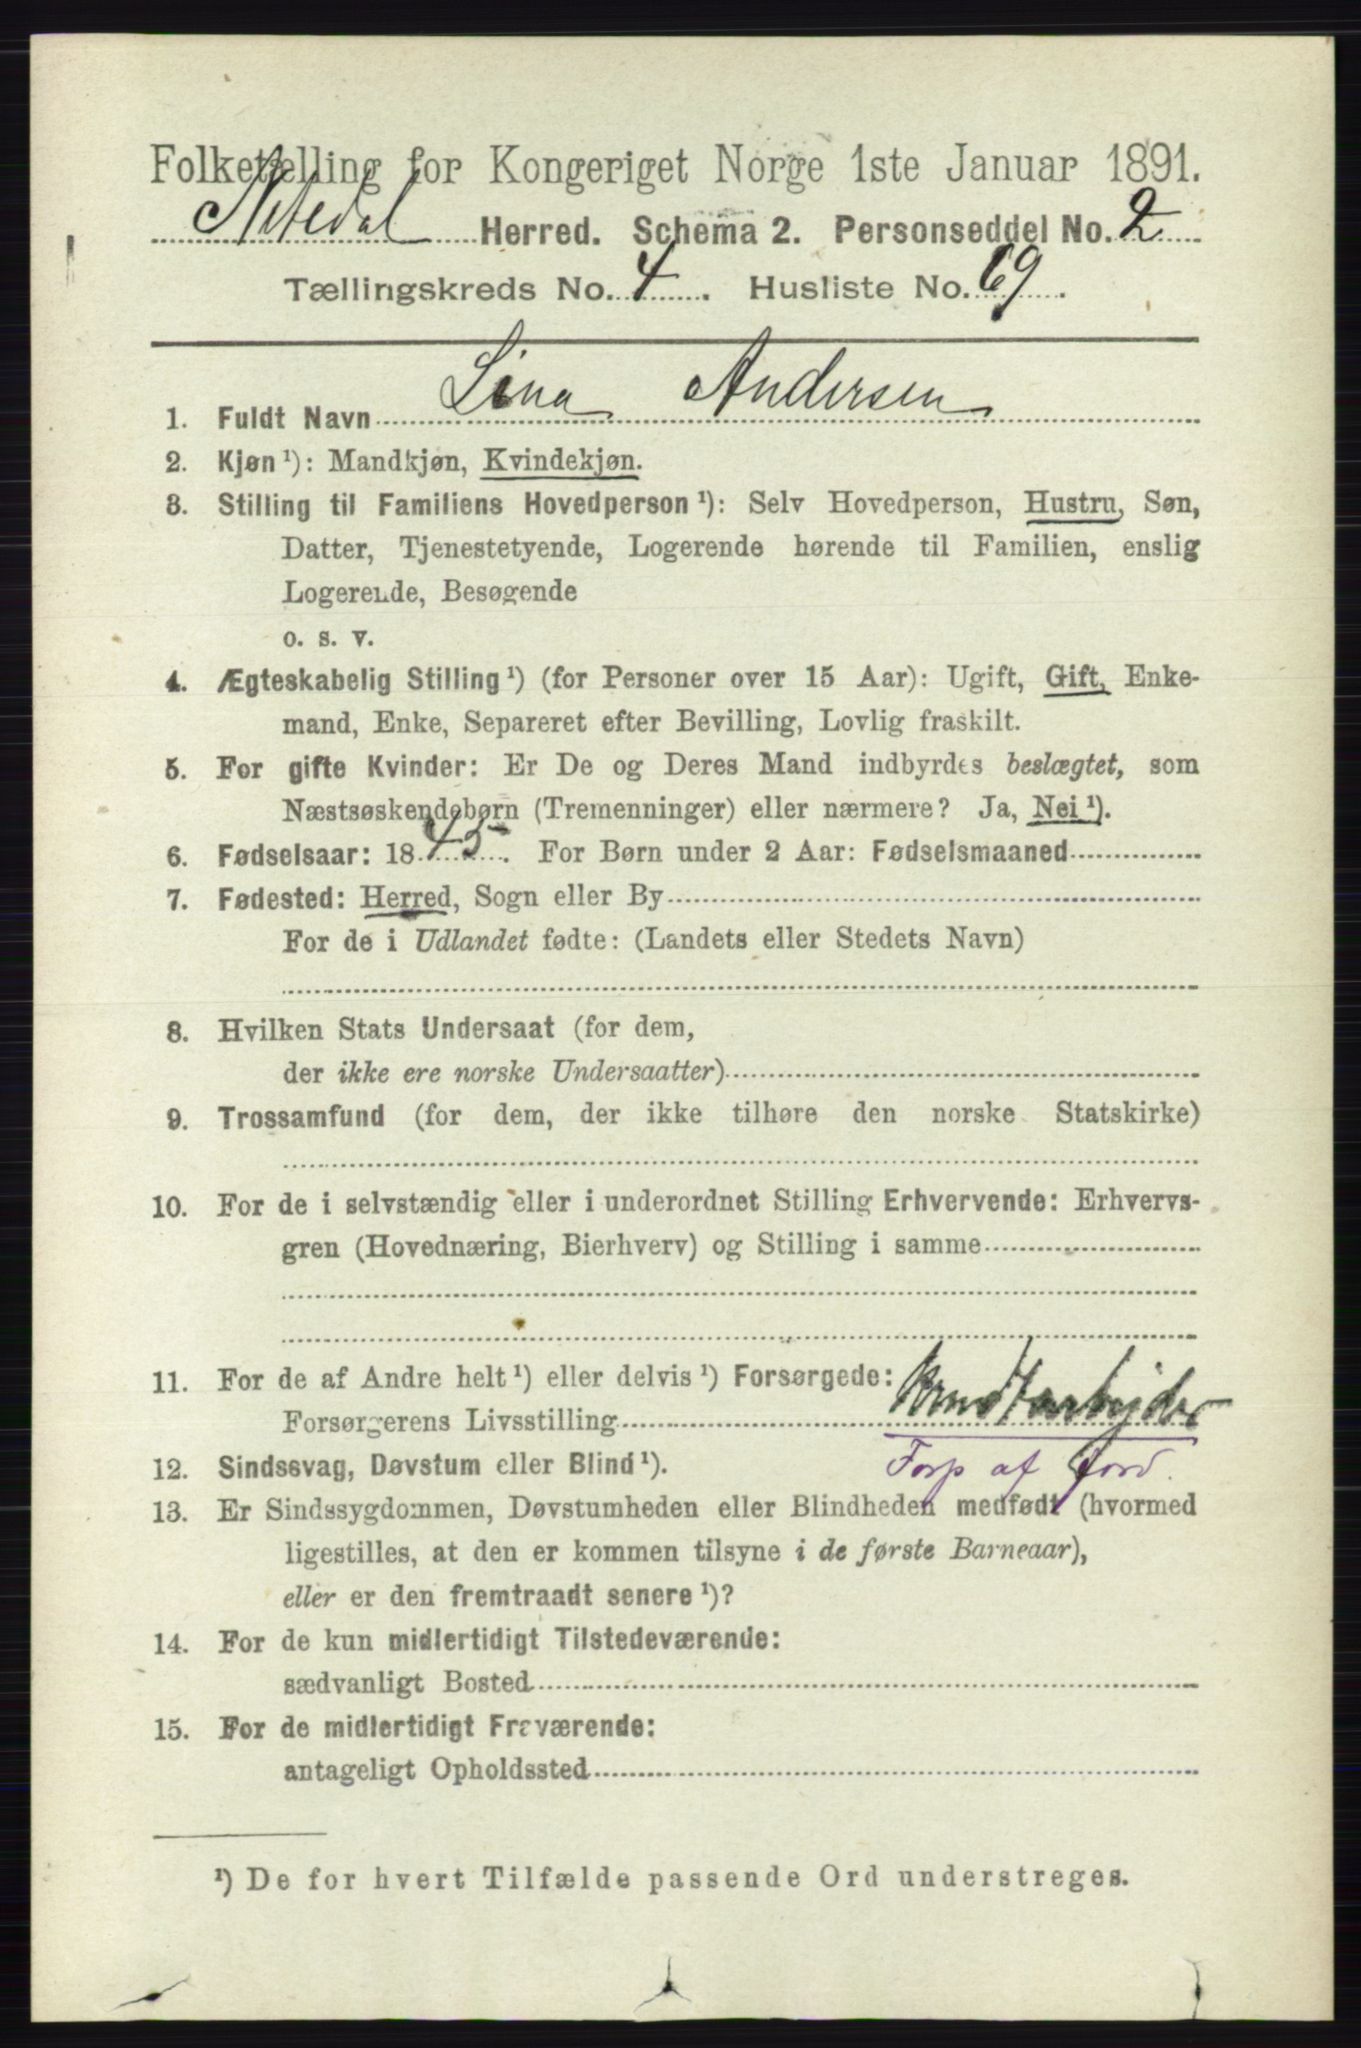 Folketælling for Kongeriget Norge 1ste Januar 1891.
Nitedal Herred. Schema 2. Personseddel No. 2
Tællingskreds No. 4. Husliste No. 69.
1. Fuldt Navn Lina Andersen
2. Kjøn ¹): Mandkjøn, Kvindekjøn.
3. Stilling til Familiens Hovedperson ¹): Selv Hovedperson, Hustru, Søn,
Datter, Tjenestetyende, Logerende hørende til Familien, enslig
Logerende, Besøgende
o. s. v.
4. Ægteskabelig Stilling ¹) (for Personer over 15 Aar): Ugift, Gift, Enke-
mand, Enke, Separeret efter Bevilling, Lovlig fraskilt.
5. For gifte Kvinder: Er De og Deres Mand indbyrdes beslægtet, som
Næstsøskendebørn (Tremenninger) eller nærmere? Ja, Nei ¹).
6. Fødselsaar: 1845. For Børn under 2 Aar: Fødselsmaaned
7. Fødested: Herred, Sogn eller By
For de i Udlandet fødte: (Landets eller Stedets Navn)
8. Hvilken Stats Undersaat (for dem,
der ikke ere norske Undersaatter)
9. Trossamfund (for dem, der ikke tilhøre den norske Statskirke)
10. For de i selvstændig eller i underordnet Stilling Erhvervende: Erhvervs-
gren (Hovednæring, Bierhverv) og Stilling i samme
11. For de af Andre helt ¹) eller delvis ¹) Forsørgede:
Forsørgerens Livsstilling
12. Sindssvag, Døvstum eller Blind ¹). Forp af Jord.
13. Er Sindssygdommen, Døvstumheden eller Blindheden medfødt (hvormed
ligestilles, at den er kommen tilsyne i de første Barneaar),
eller er den fremtraadt senere ¹)?
14. For de kun midlertidigt Tilstedeværende:
sædvanligt Bosted
15. For de midlertidigt Fraværende:
antageligt Opholdssted
¹) De for hvert Tilfælde passende Ord understreges.